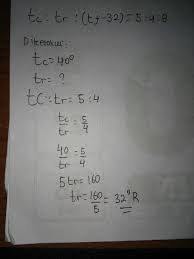 tc : tr : (tf-32) = 5 : 4 : 9
Diketahui :
tc = 40°
tr = ?
tC : tr = 5 : 4
tc/tr = 5/4
40/tr = 5/4
5tr = 160
tr = 160/5 = 32°R